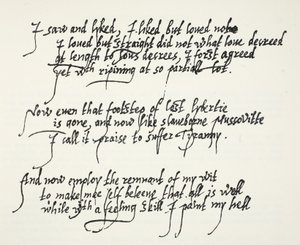 I saw and liked, I liked but loued not
I loued but straight did not what loue decreed
at length to loues decrees, I forst agreed
yet wth repining at so partiall lot.
Now even that footstep of lost lybertie
is gone, and now like slaueborne Mussovitte
I call it praise to suffer Tyranny.
And now employ the remnant of my wit
to make mee self beleeue that all is well
while wth a feeling skill I paint my hell